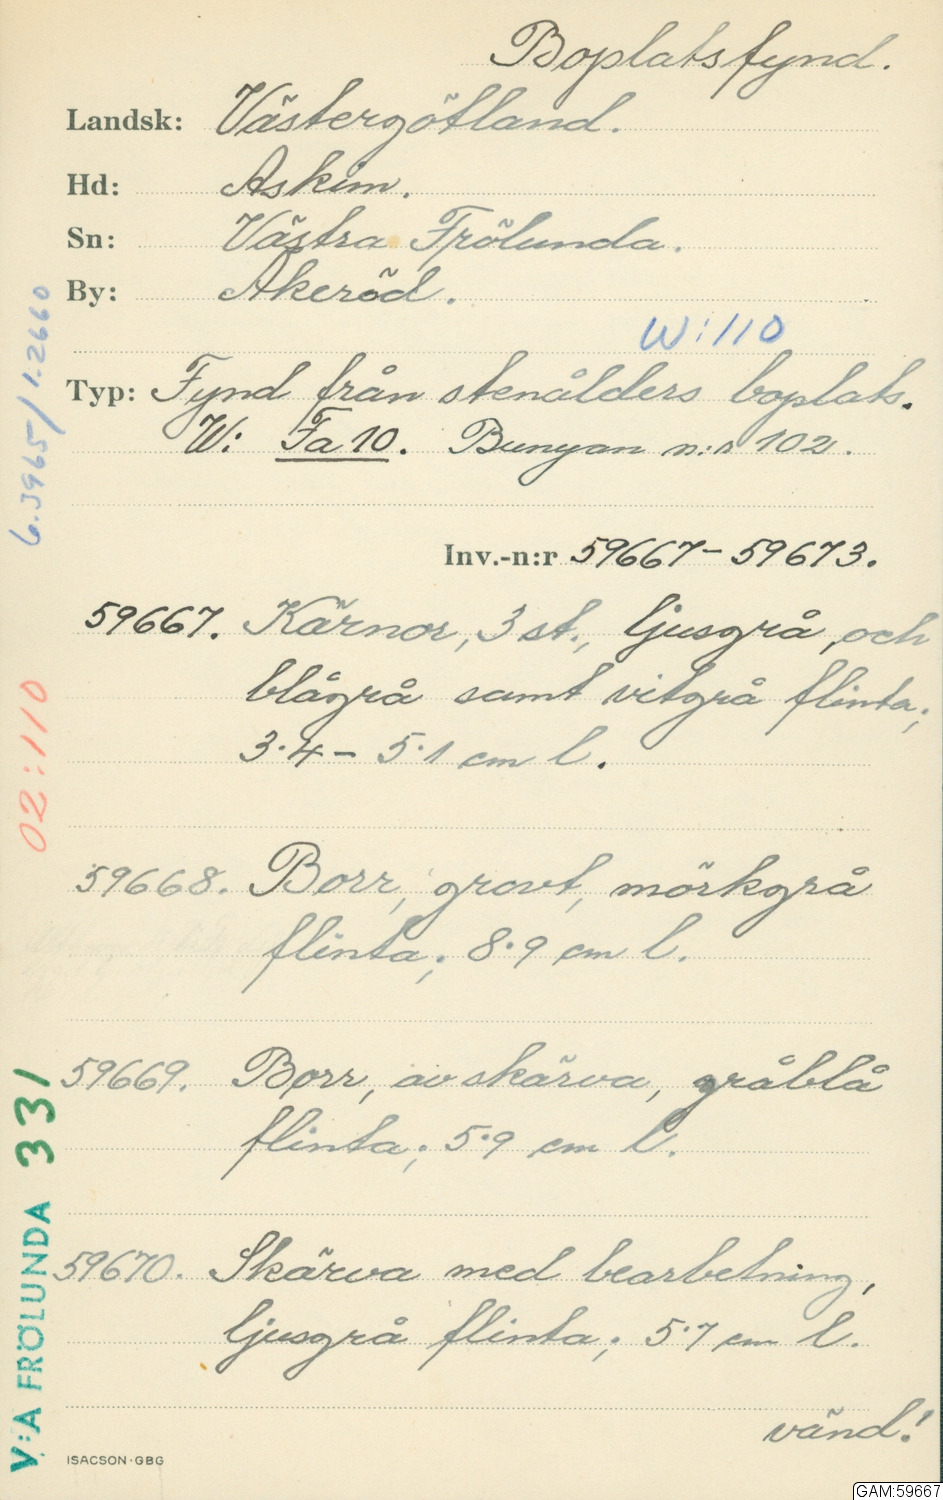 Boplatsfynd.
Landsk: Västergötland.
Hd: Askim.
Sn: Västra Frölunda.
By: Åkeröd.
W:110
Typ: Fynd från stenålders boplats.
W: Fa 10. Bunyan n:r 102.
Inv.-n:r 59667-59673.
59667. Kärnor, 3 st., ljusgrå, och
blågrå samt vitgrå flinta;
3·4 - 5·1 cm l.
59668. Borr, grovt, mörkgrå
flinta; 8·9 cm l.
59669. Borr, av skärva, gråblå
flinta; 5·9 cm l.
59670. Skärva med bearbetning,
ljusgrå flinta; 5·7 cm l.
vänd!
6.3965/1.2660
02:110
V:A FRÖLUNDA 331
ISACSON·GBG
GAM:59667